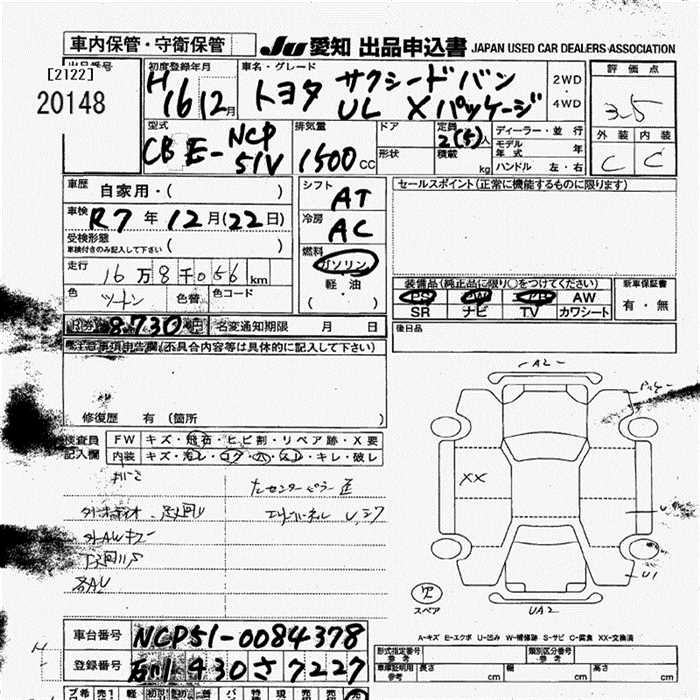 車内保管・守衛保管
JU 愛知 出品申込書 JAPAN USED CAR DEALERS ASSOCIATION
出品番号
[2122]
20148
初度登録年月
H16 12月
車名・グレード
トヨタ サクシードバン
UL Xパッケージ
2WD
・
4WD
評価点
3.5
外装 内装
C C
型式
CBE-NCP
51V
排気量
1500CC
ドア
形状
定員 2(5)人
積載 kg
ディーラー・並行
モデル
年式 年
ハンドル 左・右
車歴 自家用・( )
車検 R7年12月(22日)
受検形態
車検付きのみ記入して下さい ( )
走行 16万8千056km
色 ツートン 色替 色コード
シフト AT
冷房 AC
燃料
ガソリン
軽・油
( ・ )
セールスポイント(正常に機能するものに限ります)
装備品(純正品に限り○をつけてください)
PS PW AB AW
SR ナビ TV カワシート
新車保証書
有・無
後日品
R券 8,730円 名変通知期限 月 日
注意事項申告欄(不具合内容等は具体的に記入して下さい)
修復歴 有 (箇所 )
検査員
記入欄
FW キズ・飛石・ヒビ割・リペア跡・X要
内装 キズ・汚レ・コゲ・穴・スレ・キレ・破レ
A2
XX
U1
UA2
スペア
A-キズ E-エクボ U-凹み W-補修跡 S-サビ C-腐食 XX-交換済
車台番号 NCP51-0084378
登録番号 石川430さ7227
形式指定番号
参考
類別区分番号
参考
車庫証明用
参考
長さ cm 幅 cm 高さ cm